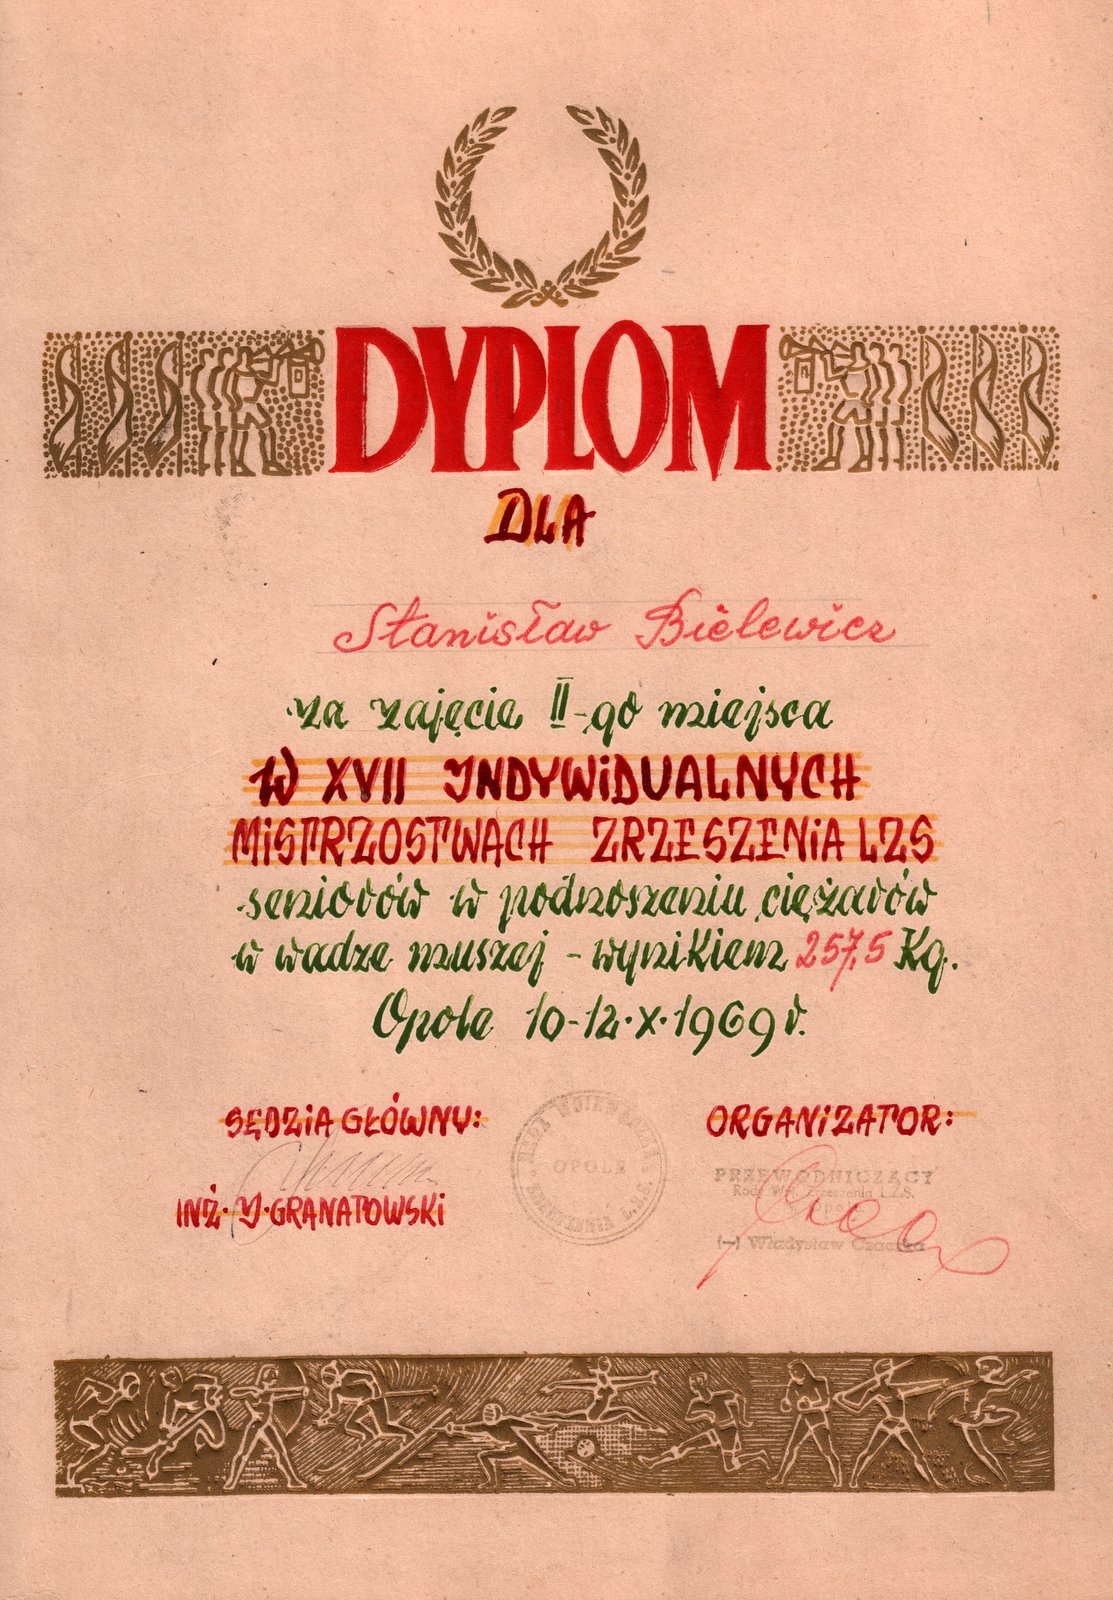 DYPLOM
DLA
Stanisław Bielewicz
za zajęcie II-go miejsca
W XVII INDYWIDUALNYCH
MISTRZOSTWACH ZRZESZENIA LZS
seniorów w podnoszeniu ciężarów
w wadze muszej - wynikiem 257,5 Kg.
Opole 10-12.X.1969 r.
SĘDZIA GŁÓWNY:
INŻ. J. GRANATOWSKI
RADA WOJEWÓDZKA
OPOLE
ZRZESZENIA L.Z.S.
ORGANIZATOR:
PRZEWODNICZĄCY
Rady Zrzeszenia LZS.
(—) Władysław